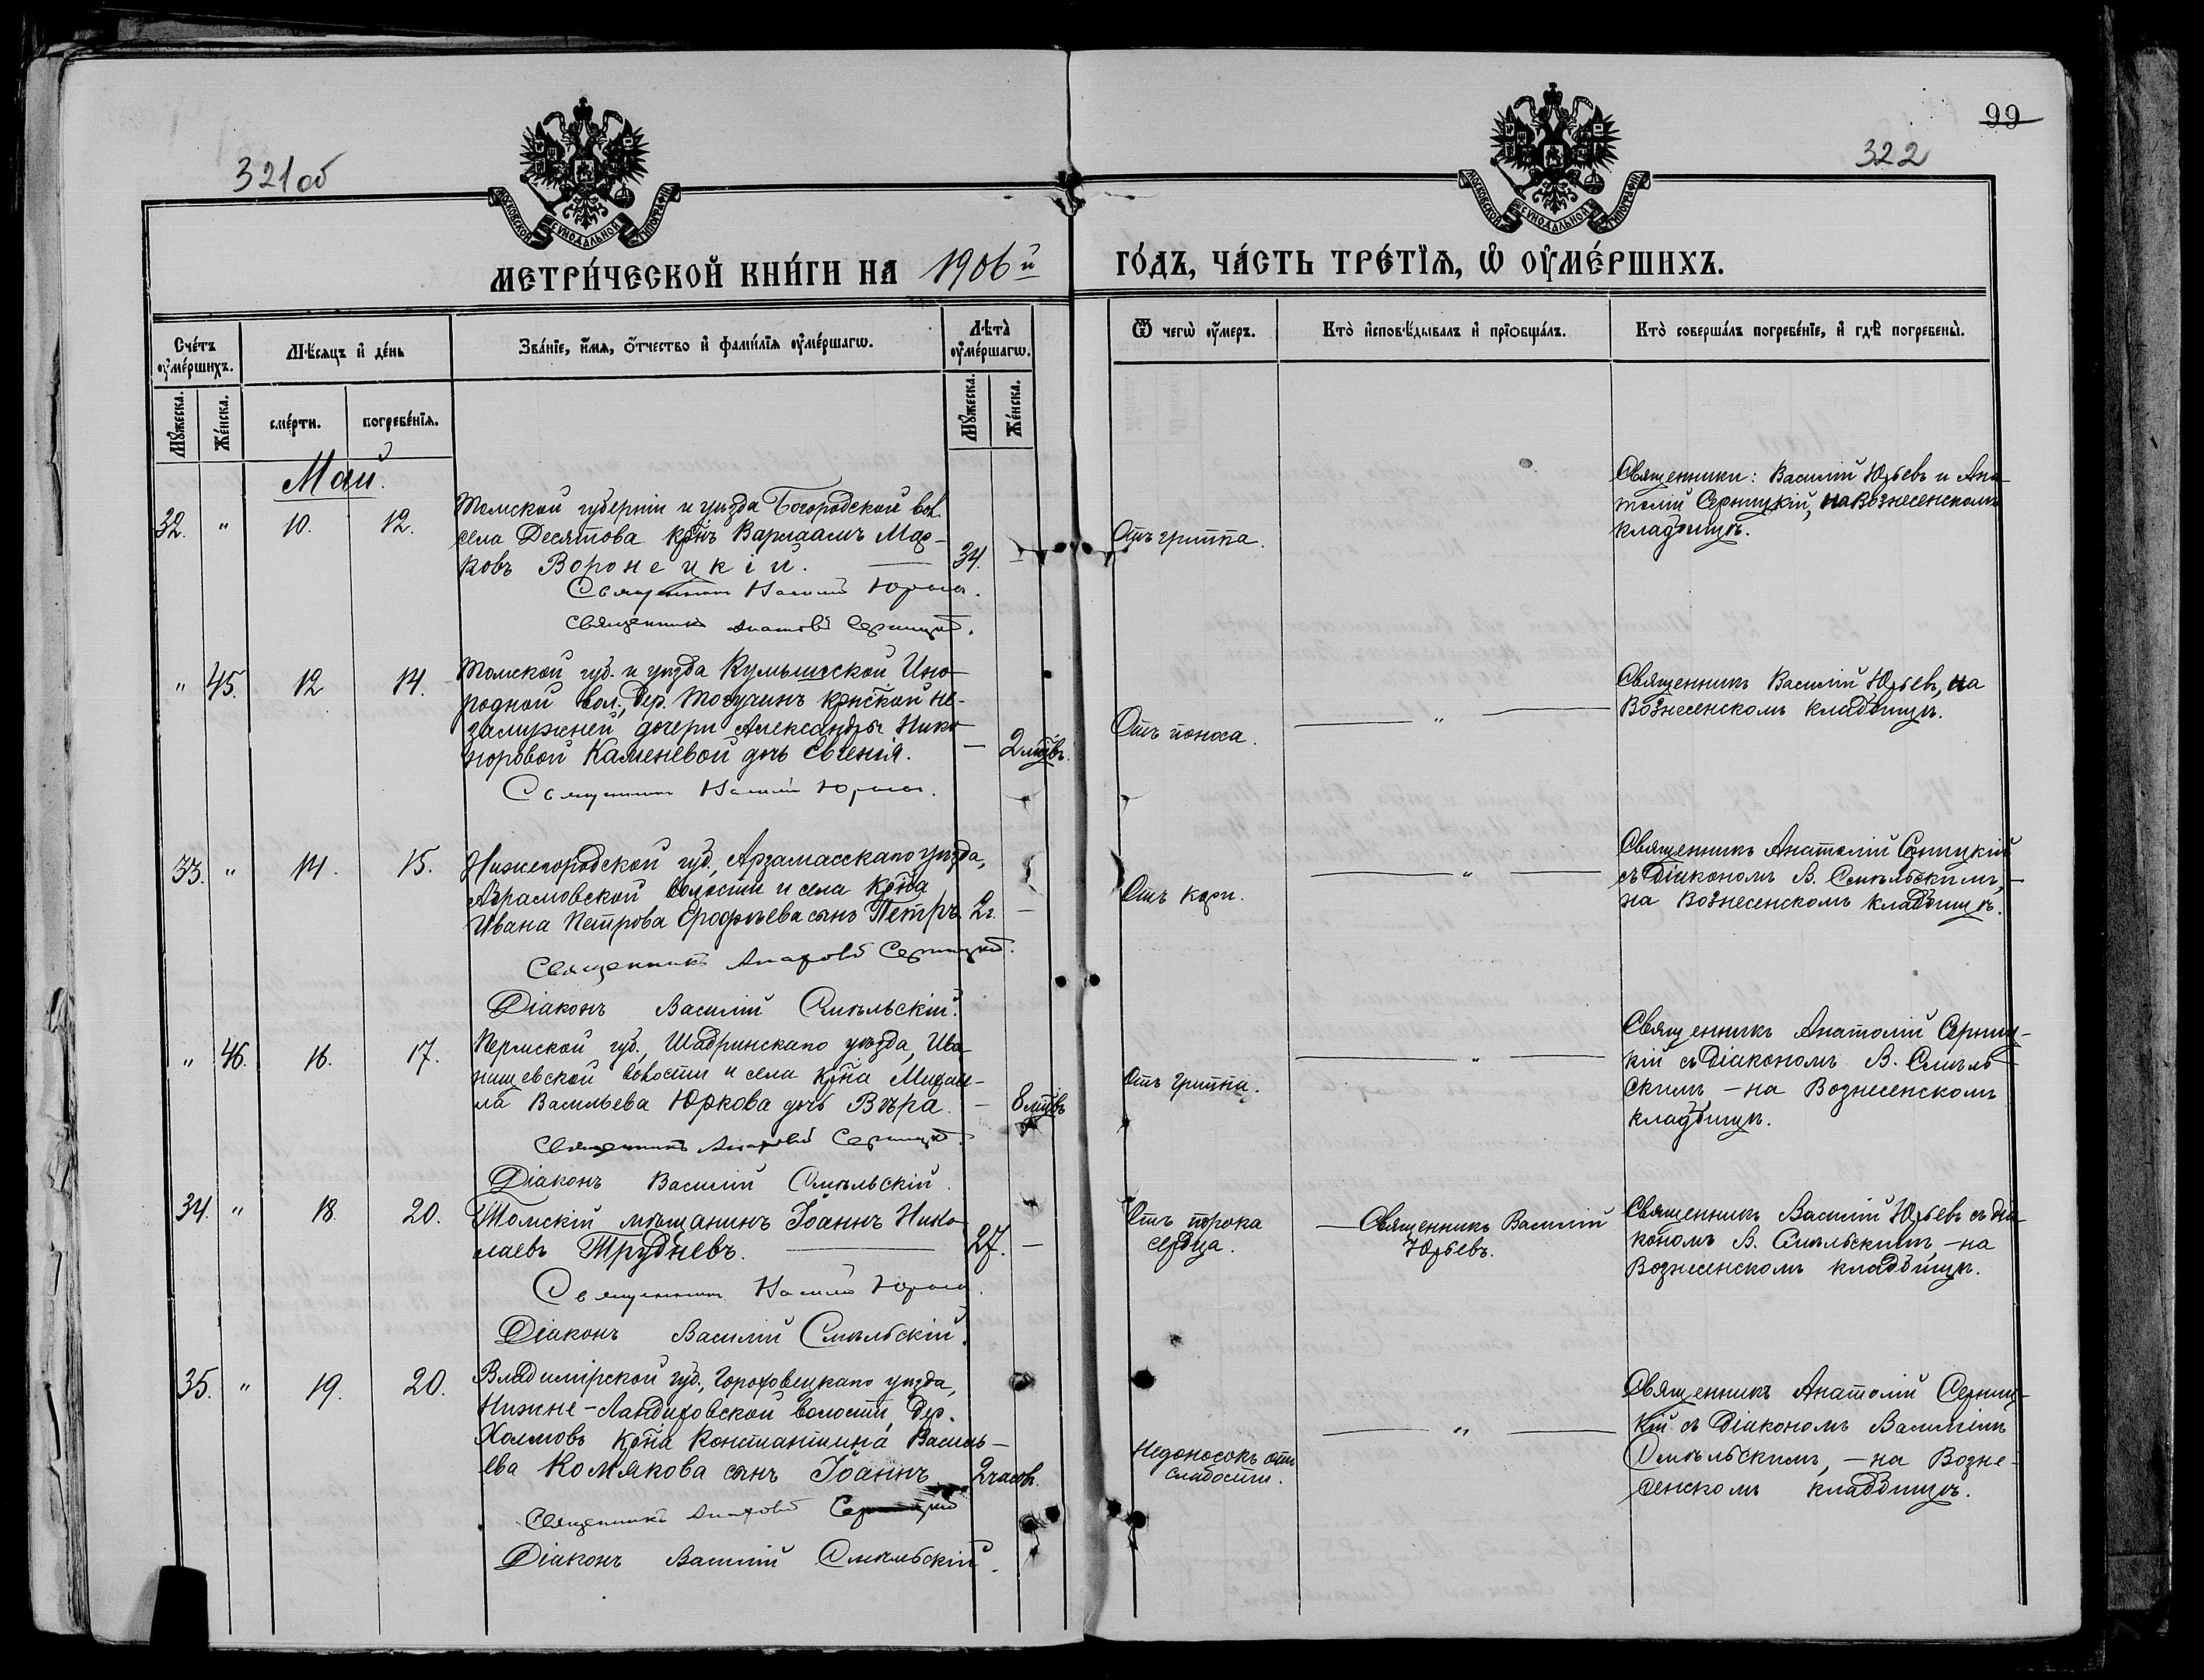 99
321об
322
МОСКОВСКОЙ СѴНОДАЛЬНОЙ ТИПОГРАФІИ
МОСКОВСКОЙ СѴНОДАЛЬНОЙ ТИПОГРАФІИ
МЕТРИ́ЧЕСКОЙ КНИ́ГИ НА 1906й
ГО́ДЪ, ЧА́СТЬ ТРЕ́ТЇѦ, Ѡ ОУ҆МЕ́РШИХЪ.
Сче́тъ оу҆ме́ршихъ.
Мѣ́сяцъ и҆ де́нь
Зва́нїе, и҆́мѧ, ѻ҆́тчество и҆ фами́лїѧ оу҆ме́ршагѡ.
Лѣ́та оу҆ме́ршагѡ.
Ѿ чегѡ̀ оу҆́меръ.
Кто̀ и҆сповѣ́дывалъ и҆ прїѡбща́лъ.
Кто̀ соверша́лъ погребе́нїе, и҆ гдѣ̀ погребены̀.
Мꙋ́жеска.
Же́нска.
сме́рти.
погребе́нїѧ.
Мꙋ́жеска.
Же́нска.
Май.
32. " 10. 12.
Томской губерніи и уѣзда Богородской вол.
села Десятова кр̃нъ Варлаамъ Мар-
ковъ Воронецкій. — 34. —
Священникъ Василій Юрьевъ.
Священникъ Анатолій Серницкій.
Отъ гриппа.
Священники: Василій Юрьевъ и Ана-
толій Серницкій, на Вознесенскомъ
кладбищѣ.
" 45. 12 14.
Томской губ. и уѣзда Кумышской Ино-
родной вол., дер. Тогучинъ кр̃нской не-
замужней дочери Александры Нико
норовой Каменевой дочь Евгенія. — 2 мцвъ.
Священникъ Василій Юрьевъ.
Отъ поноса.
— " —
Священникъ Василій Юрьевъ, на
Вознесенскомъ кладбищѣ.
33. " 14. 15.
Нижегородской губ., Арзамасскаго уѣзда,
Абрамовской волости и села кр̃на
Ивана Петрова Ерофѣева сынъ Петръ 2 г. —
Священникъ Анатолій Серницкій.
Діаконъ Василій Смѣльскій.
Отъ кори.
— " —
Священникъ Анатолій Серницкій
съ Діакономъ В. Смѣльскимъ, —
на Вознесенскомъ кладбищѣ.
" 46. 16. 17.
Пермской губ., Шадринскаго уѣзда, Ива
нищевской волости и села кр̃на Михаи-
ла Васильева Юркова дочь Вѣра. — 8 мцвъ
Священникъ Анатолій Серницкій.
Діаконъ Василій Смѣльскій.
Отъ гриппа.
— " —
Священникъ Анатолій Серниц-
кій съ Діакономъ В. Смѣль-
скимъ — на Вознесенскомъ
кладбищѣ.
34. " 18. 20.
Томскій мѣщанинъ Іоаннъ Нико
лаевъ Трудневъ. — 27. —
Священникъ Василій Юрьевъ.
Діаконъ Василій Смѣльскій.
Отъ порока
сердца.
—Священникъ Василій
Юрьевъ.
Священникъ Василій Юрьевъ съ діа
кономъ В. Смѣльскимъ, — на
Вознесенскомъ кладбищѣ.
35. " 19. 20.
Владимірской губ., Гороховецкаго уѣзда,
Нижне-Ландиховской волости, дер.
Холмовъ кр̃на Константина Василь-
ева Комякова сынъ Іоаннъ 2 часов.
Священникъ Анатолій Серницкій
Діаконъ Василій Смѣльскій.
Недоносокъ отъ
слабости.
— " —
Священникъ Анатолій Серниц-
кій съ Діакономъ Василіемъ
Смѣльскимъ, — на Возне-
сенскомъ кладбищѣ.